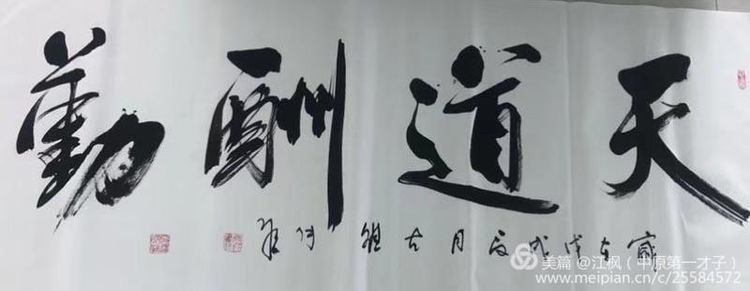 天道酬勤
岁在戊戌
美篇 @江枫（中原第一才子）
www.meipian.cn/c/25584572